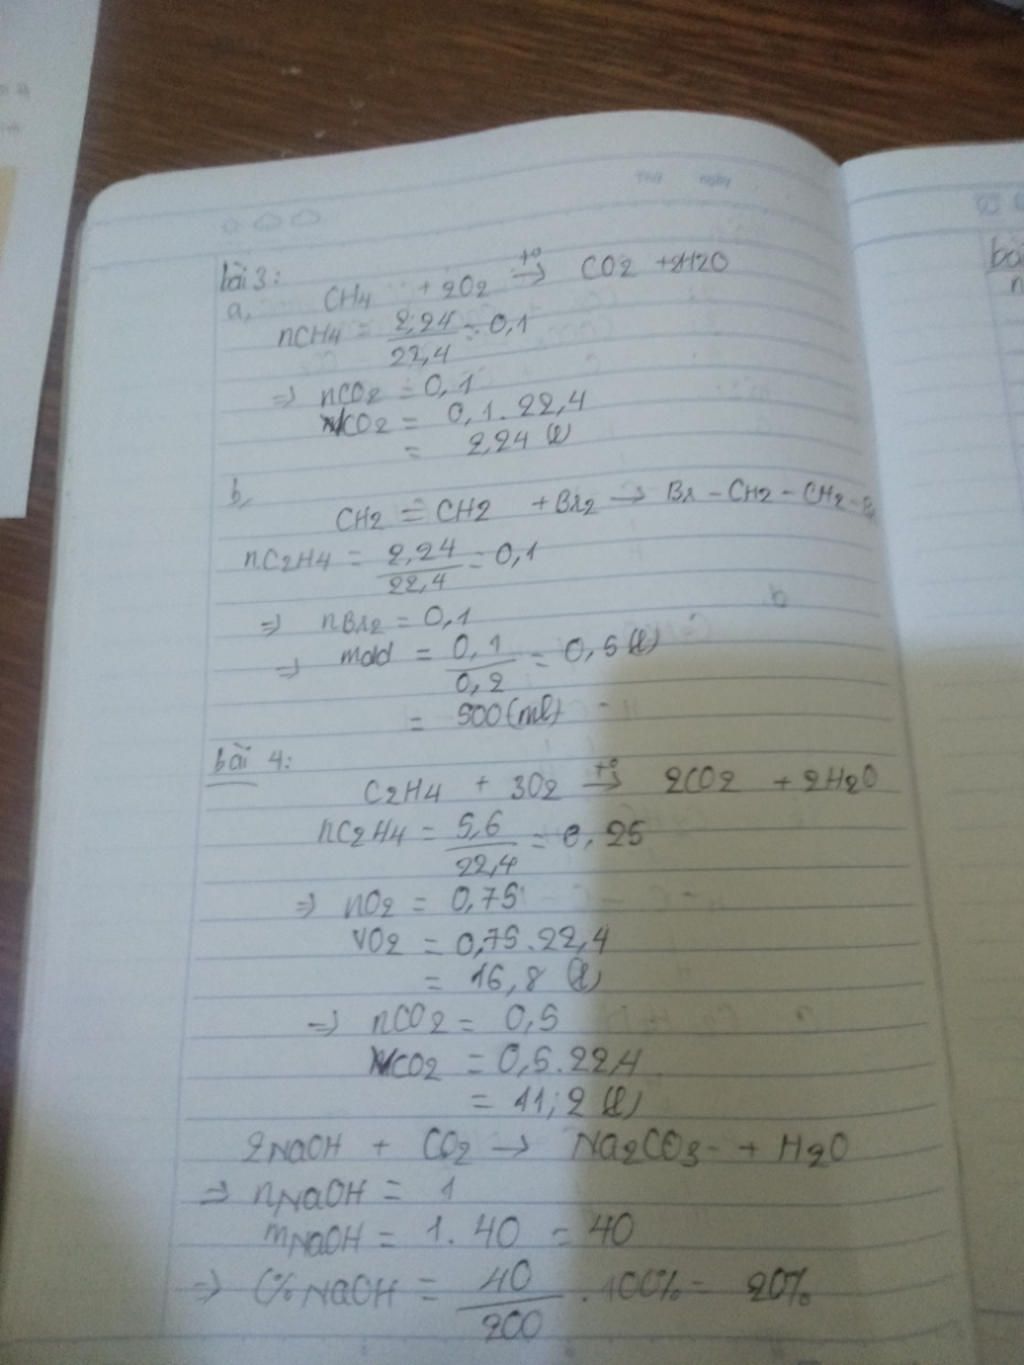 Thứ ngày
bài 3:
a, CH4 + 2O2 →(t°) CO2 + 2H2O
nCH4 = 2,24/22,4 = 0,1
=> nCO2 = 0,1
VCO2 = 0,1.22,4
= 2,24 (l)
b, CH2 = CH2 + Br2 → Br - CH2 - CH2 - B
nC2H4 = 2,24/22,4 = 0,1
=> nBr2 = 0,1
=> = 0,1/0,2 = 0,5 (l)
= 500 (ml)
bài 4:
C2H4 + 3O2 →(t°) 2CO2 + 2H2O
nC2H4 = 5,6/22,4 = 0,25
=> nO2 = 0,75
VO2 = 0,75.22,4
= 16,8 (l)
=> nCO2 = 0,5
VCO2 = 0,5.22,4
= 11,2 (l)
2NaOH + CO2 → Na2CO3 + H2O
=> nNaOH = 1
mNaOH = 1.40 = 40
=> C%NaOH = 40/200 . 100% = 20%
bà
n